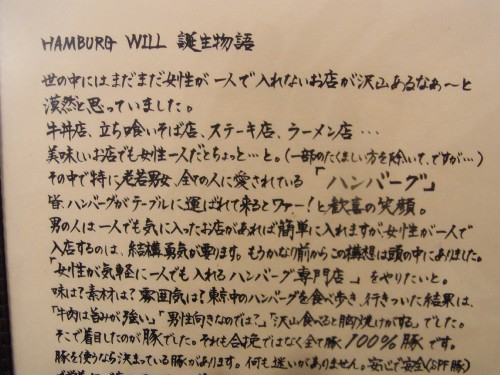 HAMBURG WILL 誕生物語
世の中にはまだまだ女性が一人で入れないお店が沢山あるなぁ〜と
漠然と思っていました。
牛丼店、立ち喰いそば店、ステーキ店、ラーメン店 …
美味しいお店でも女性一人だとちょっと…と。(一部のたくましい方を除いて、ですが…)
その中で特に老若男女、全ての人に愛されている「ハンバーグ」
皆、ハンバーグがテーブルに運ばれて来るとワァー!と歓喜の笑顔。
男の人は一人でも気に入ったお店があれば簡単に入れますが、女性が一人で
入店するのは、結構勇気が要ります。もうかなり前からこの構想は頭の中にありました。
「女性が気軽に一人でも入れるハンバーグ専門店。」をやりたいと。
味は?素材は?雰囲気は?東京中のハンバーグを食べ歩き、行きついた結果は、
「牛肉は旨みが強い」「男性向きなのでは?」「沢山食べると胸焼けがする」でした。
そこで着目したのが豚でした。それも合挽ではなく全て豚100%豚です。
豚を使うなら決まっている豚があります。何も迷いがありません。安心で安全(SPF豚)